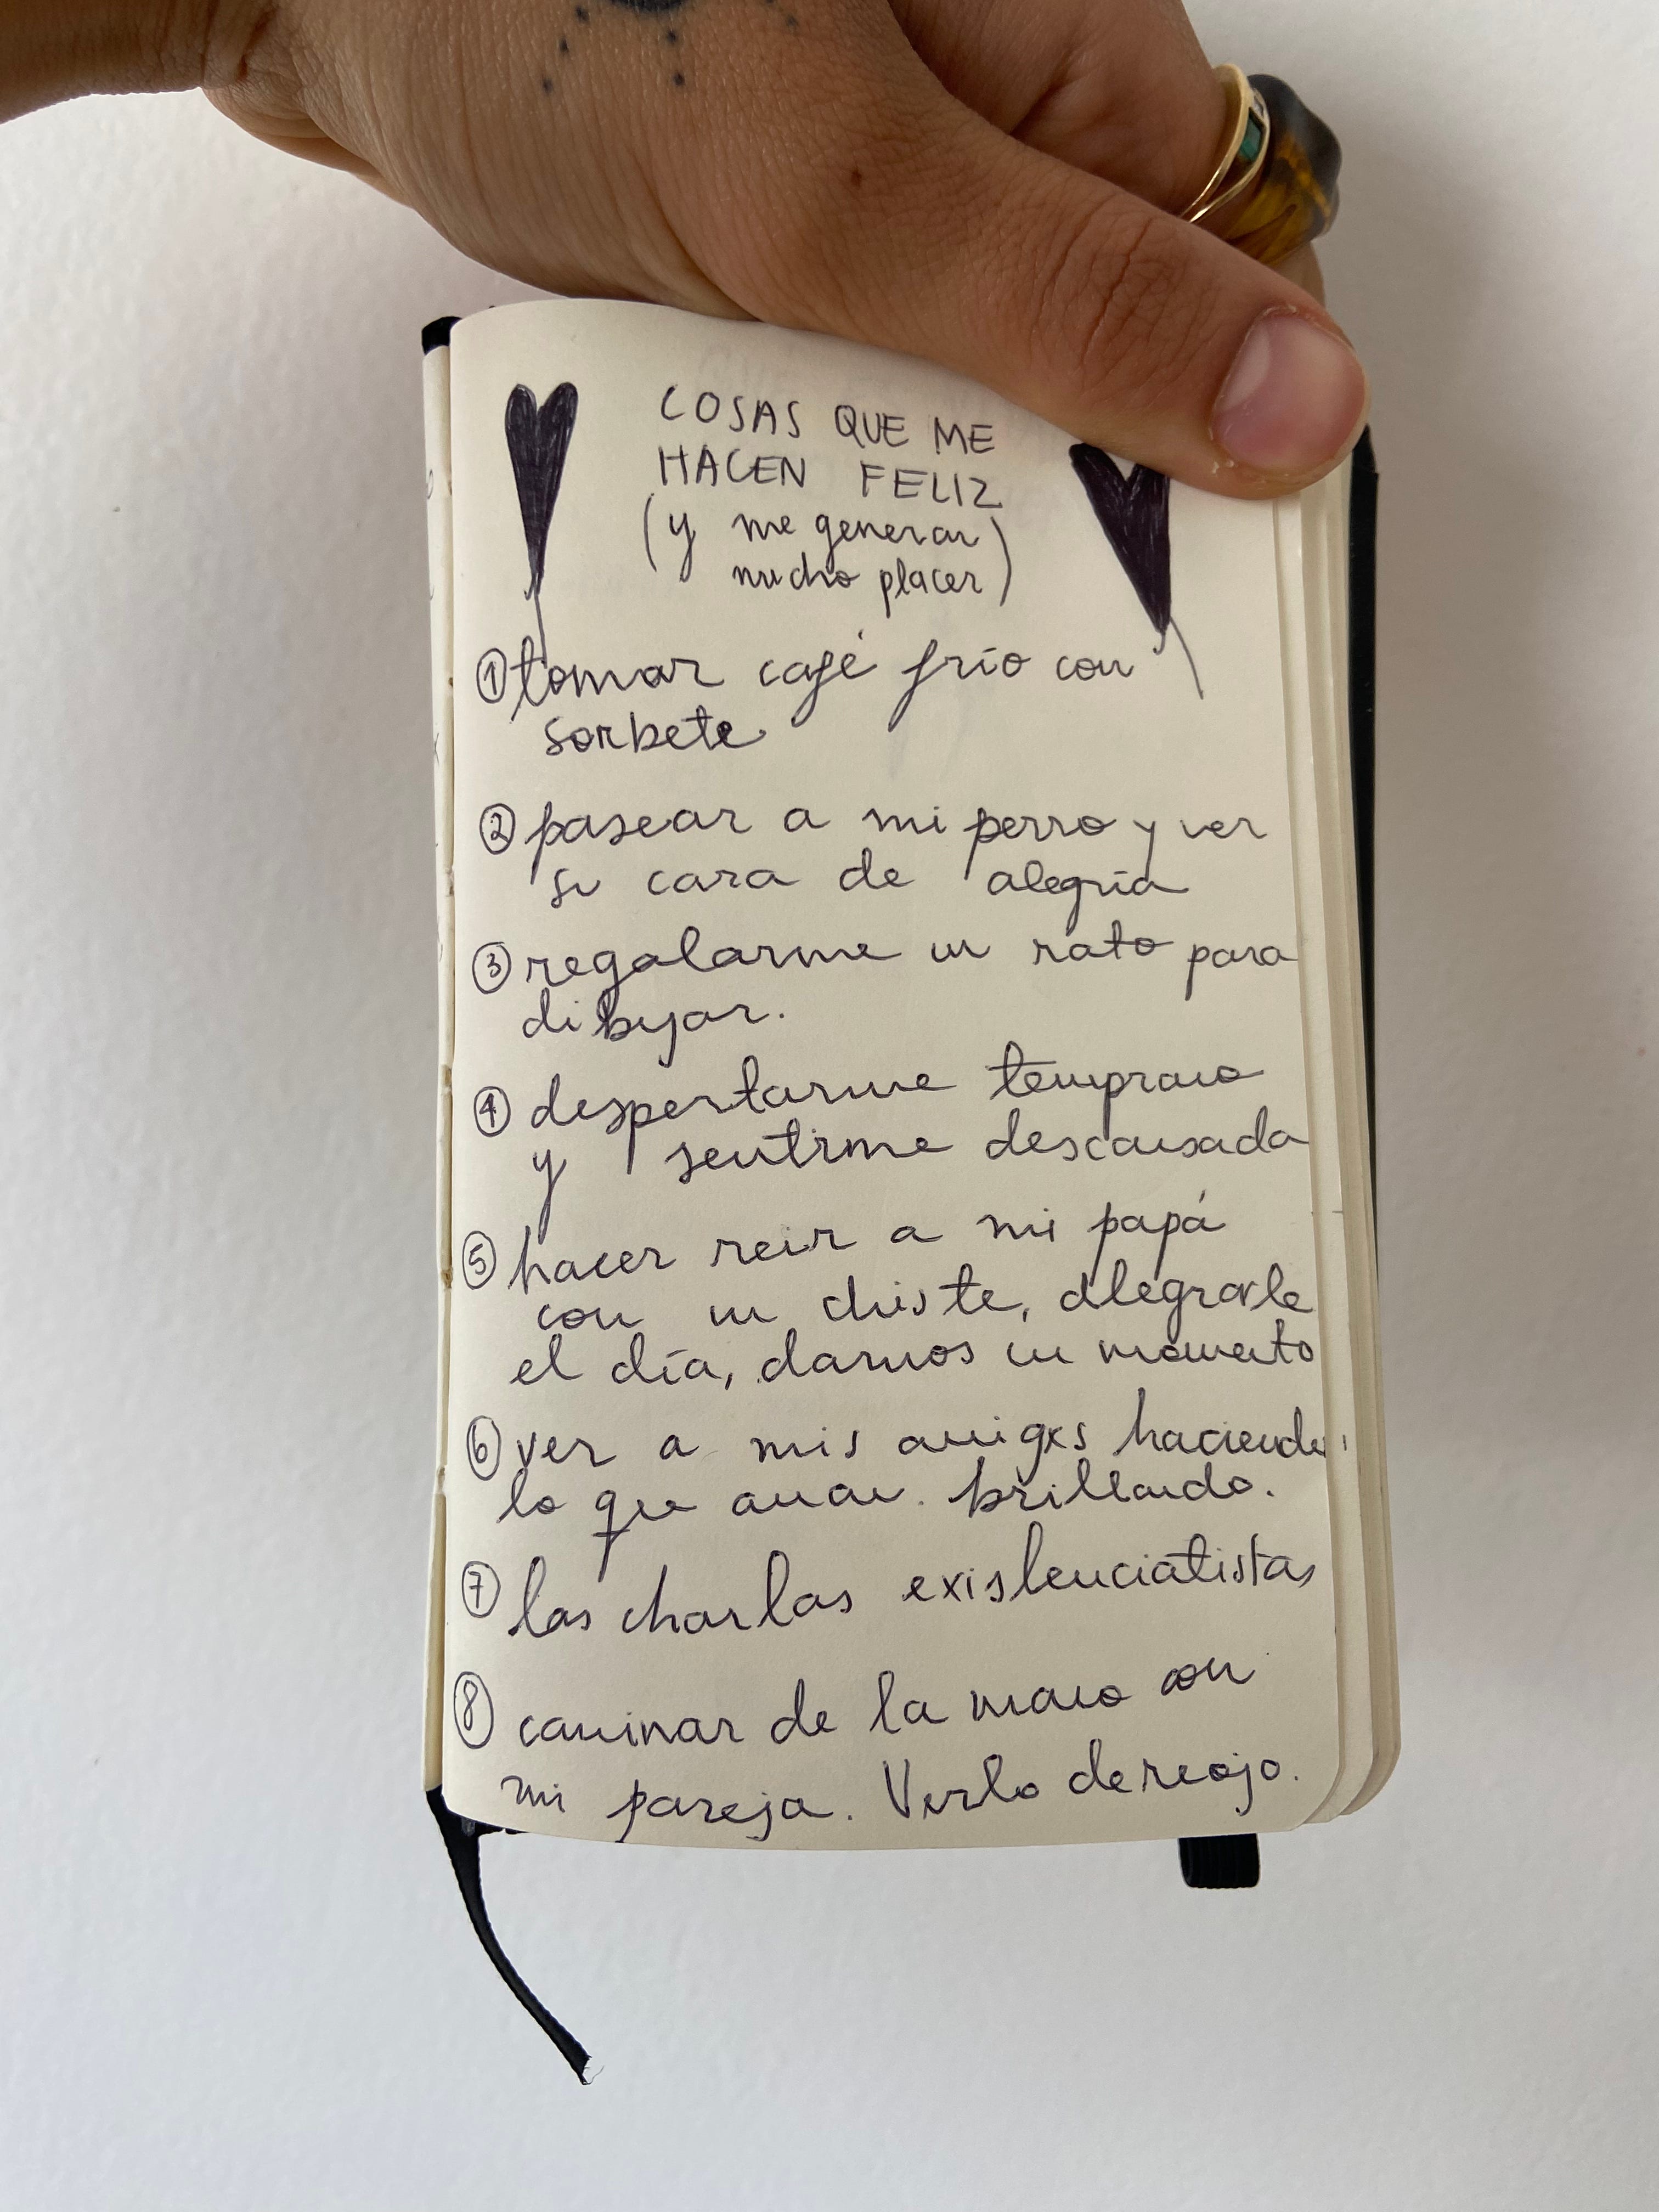 COSAS QUE ME
HACEN FELIZ
(y me generan
mucho placer)
①tomar café frío con
sorbete
②pasear a mi perro y ver
su cara de alegría
③regalarme un rato para
dibujar.
④despertarme temprano
y sentirme descansada
⑤hacer reir a mi papá
con un chiste, alegrarle
el día, darnos un momento
⑥ver a mis amigxs haciendo
lo que aman. brillando.
⑦las charlas existencialistas
⑧caminar de la mano con
mi pareja. Verlo de reojo.